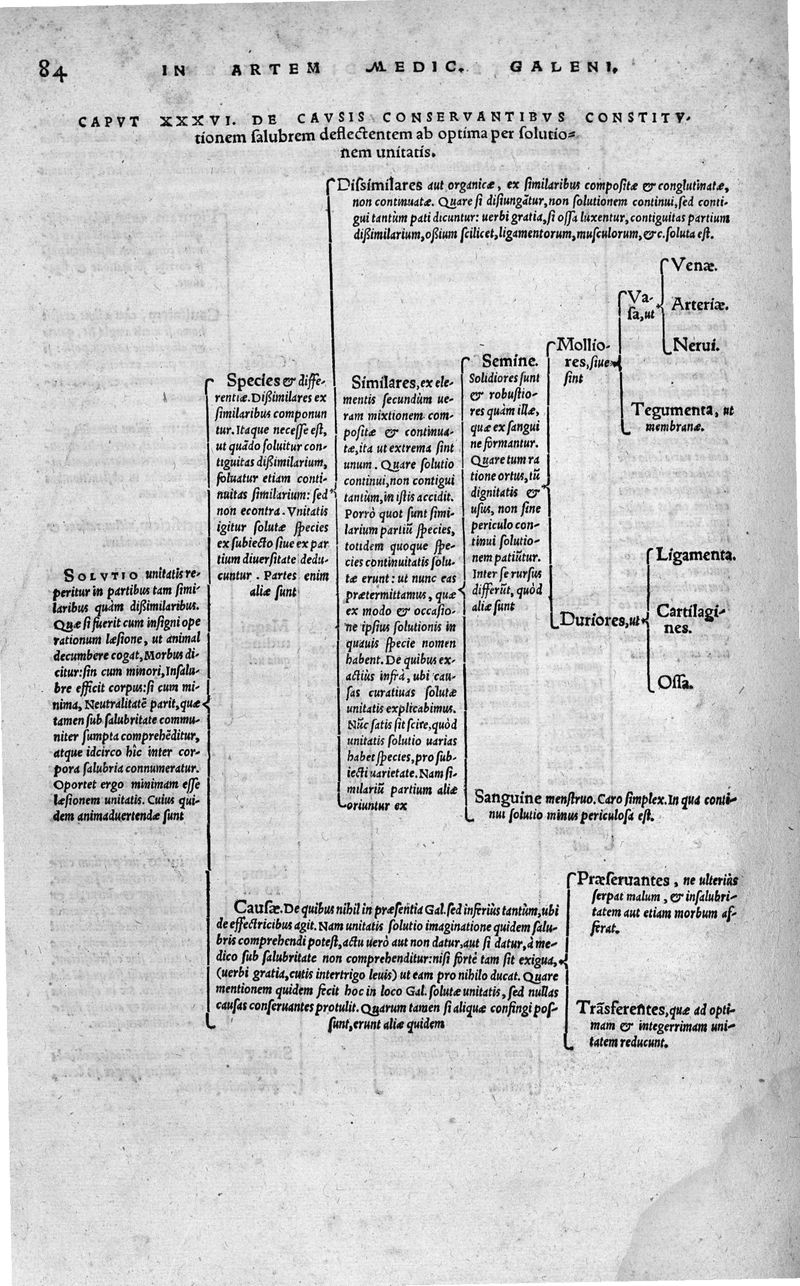 84 IN ARTEM MEDIC. GALENI.
CAPVT XXXVI. DE CAVSIS CONSERVANTIBVS CONSTITV-
tionem salubrem deflectentem ab optima per solutio=
nem unitatis.
SOLVTIO unitatis re-
peritur in partibus tam simi
laribus quàm dißimilaribus.
Quæ si fuerit cum insigni ope
rationum læsione, ut animal
decumbere cogat, Morbus di-
citur: sin cum minori, Insalu-
bre efficit corpus: si cum mi-
nima, Neutralitatē parit, quæ
tamen sub salubritate commu-
niter sumpta comprehēditur,
atque idcirco hîc inter cor-
pora salubria connumeratur.
Oportet ergo minimam esse
læsionem unitatis. Cuius qui-
dem animaduertendæ sunt
Species & diffe-
rentiæ. Dißimilares ex
similaribus componun
tur. Itaque necesse est,
ut quādo soluitur con-
tiguitas dißimilarium,
soluatur etiam conti-
nuitas similarium: sed
non econtra. Vnitatis
igitur solutæ species
ex subiecto siue ex par
tium diuersitate dedu-
cuntur. Partes enim
aliæ sunt
Dissimilares aut organicæ, ex similaribus compositæ & conglutinatæ,
non continuatæ. Quare si disiungātur, non solutionem continui, sed conti-
gui tantùm pati dicuntur: uerbi gratia, si ossa luxentur, contiguitas partium
dißimilarium, oßium scilicet, ligamentorum, musculorum, &c. soluta est.
Similares, ex ele-
mentis secundùm ue-
ram mixtionem com-
positæ & continua-
tæ, ita ut extrema sint
unum. Quare solutio
continui, non contigui
tantùm, in istis accidit.
Porrò quot sunt simi-
larium partiū species,
totidem quoque spe-
cies continuitatis solu-
tæ erunt: ut nunc eas
prætermittamus, quæ
ex modo & occasio-
ne ipsius solutionis in
quauis specie nomen
habent. De quibus ex-
actiùs infrà, ubi cau-
sas curatiuas solutæ
unitatis explicabimus.
Nūc satis sit scire, quòd
unitatis solutio uarias
habet species, pro sub-
iecti uarietate. Nam si-
milariū partium aliæ
oriuntur ex
Semine.
Solidiores sunt
& robustio-
res quàm illæ,
quæ ex sangui
ne formantur.
Quare tum ra
tione ortus, tū
dignitatis &
usus, non sine
periculo con-
tinui solutio-
nem patiūtur.
Inter se rursus
differūt, quòd
aliæ sunt
Mollio-
res, siue
sint
Va-
sa, ut
Venæ.
Arteriæ.
Nerui.
Tegumenta, ut
membranæ.
Duriores, ut
Ligamenta.
Cartilagi-
nes.
Ossa.
Sanguine menstruo. Caro simplex. In qua conti-
nui solutio minus periculosa est.
Causæ. De quibus nihil in præsentia Gal. sed inferiùs tantùm, ubi
de effectricibus agit. Nam unitatis solutio imaginatione quidem salu-
bris comprehendi potest, actu uerò aut non datur, aut si datur, à me-
dico sub salubritate non comprehenditur: nisi fortè tam sit exigua,
(uerbi gratia, cutis intertrigo leuis) ut eam pro nihilo ducat. Quare
mentionem quidem fecit hoc in loco Gal. solutæ unitatis, sed nullas
causas conseruantes protulit. Quarum tamen si aliquæ confingi pos-
sunt, erunt aliæ quidem
Præseruantes, ne ulteriùs
serpat malum, & insalubri-
tatem aut etiam morbum af-
ferat.
Trāsferentes, quæ ad opti-
mam & integerrimam uni-
tatem reducunt.